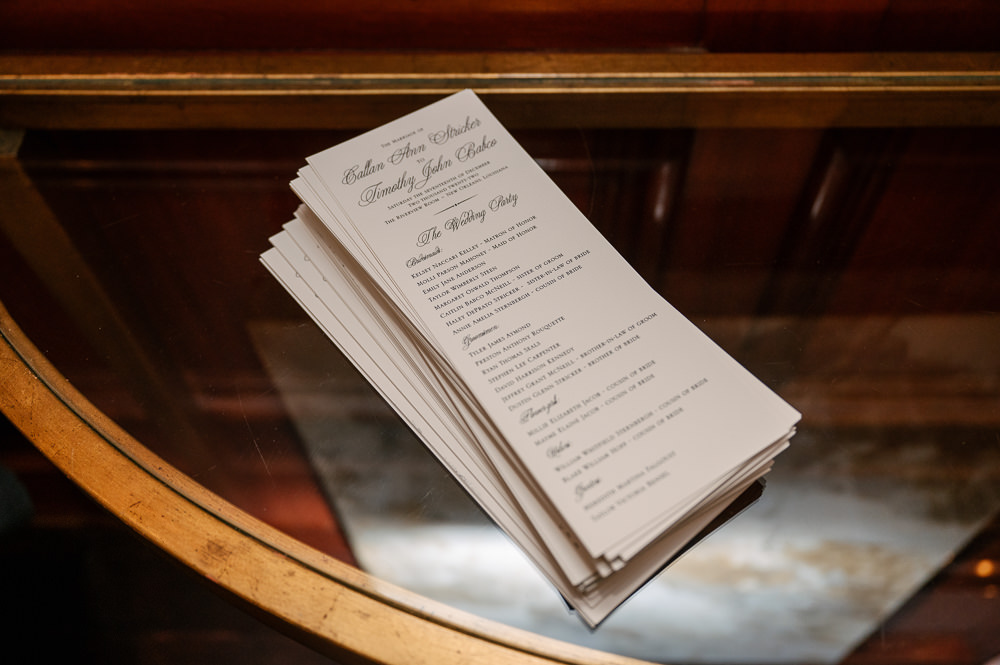 The Marriage of
Callan Ann Stricker
to
Timothy John Babco
Saturday the seventeenth of December
Two thousand twenty-two
The Riverview Room ~ New Orleans, Louisiana
The Wedding Party
Bridesmaids:
Kelsey Naccari Kelley ~ Matron of Honor
Molli Parson Mahoney ~ Maid of Honor
Emily Jane Anderson
Taylor Wimberly Steen
Margaret Oswald Thompson
Caitlin Babco McNeill ~ sister of groom
Haley DePrato Stricker ~ sister-in-law of bride
Annie Amelia Sternbergh ~ cousin of bride
Groomsmen:
Tyler James Aymond
Preston Anthony Rouquette
Ryan Thomas Seals
Stephen Lee Carpenter
David Harrison Kennedy
Jeffrey Grant McNeill ~ brother-in-law of groom
Dustin Glenn Stricker ~ brother of bride
Flower girls:
Millie Elizabeth Jacob ~ cousin of bride
Mayme Elaine Jacob ~ cousin of bride
Ushers:
William Whitfield Sternbergh ~ cousin of bride
Blake William Huff ~ cousin of bride
Greeters:
Meredith Martina
Taylor Victoria